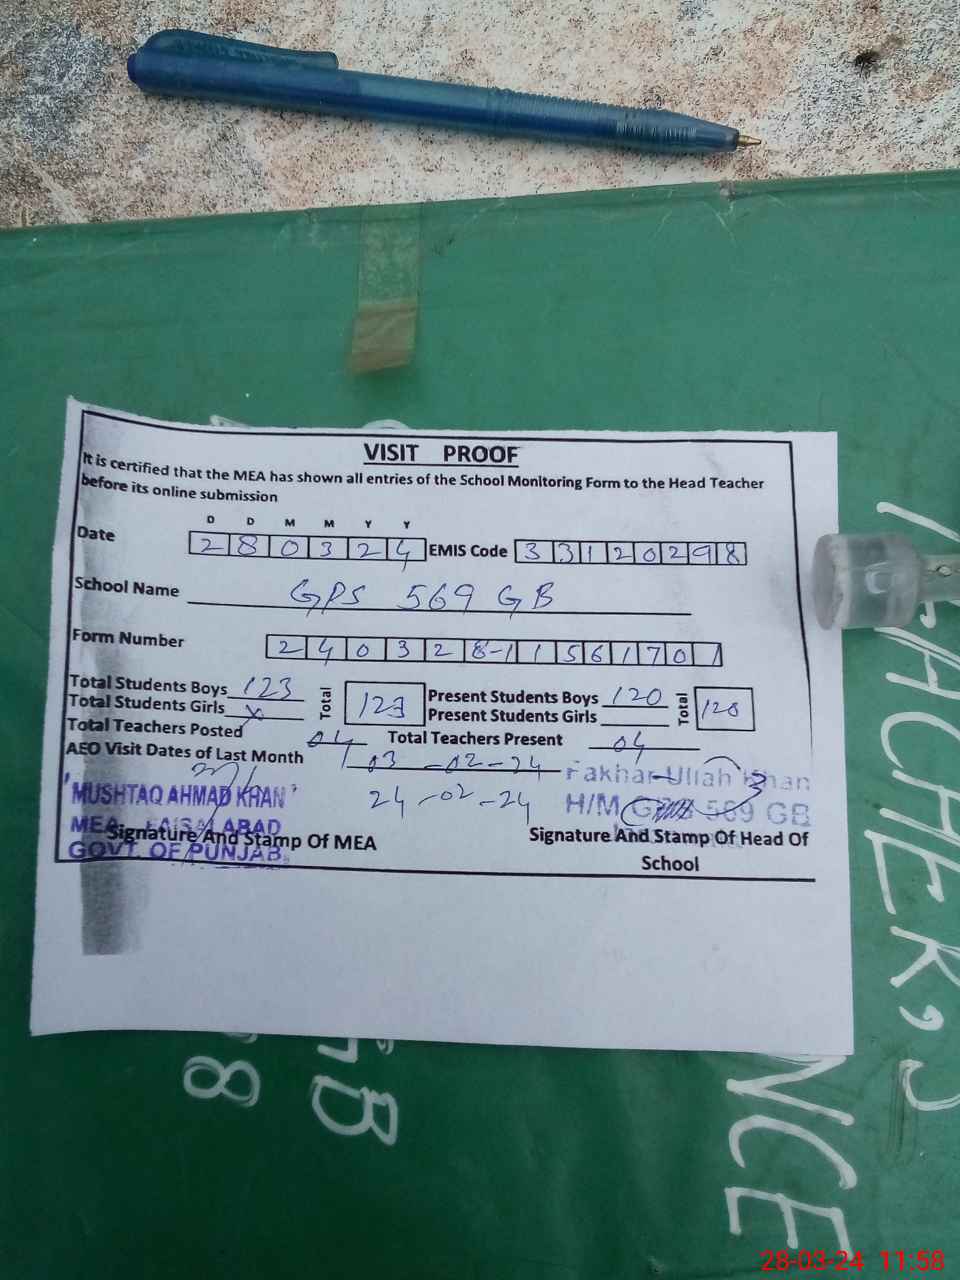 VISIT PROOF
It is certified that the MEA has shown all entries of the School Monitoring Form to the Head Teacher
before its online submission
D D M M Y Y
Date 2 8 0 3 2 4 EMIS Code 3 3 1 2 0 2 9 8
School Name GPS 569 GB
Form Number 2 4 0 3 2 8-1 1 5 6 1 7 0 1
Total Students Boys 123 Total 123 Present Students Boys 120 Total 120
Total Students Girls X Present Students Girls
Total Teachers Posted 04 Total Teachers Present 04
AEO Visit Dates of Last Month 03-02-24
24-02-24
MUSHTAQ AHMAD KHAN
MEA FAISALABAD
GOVT. OF PUNJAB
Signature And Stamp Of MEA
Fakhar Ullah Khan
H/M GPS 569 GB
Signature And Stamp Of Head Of
School
GB
8
NCE
28-03-24 11:58